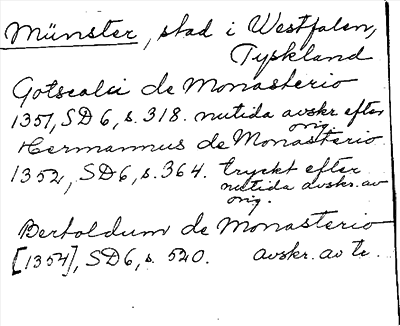 Münster, stad i Westfalen,
Tyskland
Gotscalci de Monasterio
1351, SD 6, s. 318. nutida avskr efter
orig.
Hermannus de Monasterio
1352, SD 6, s. 364. tryckt efter
nutida avskr. av
orig.
Bertoldum de Monasterio
[1354], SD 6, s. 520. avskr. av tr.